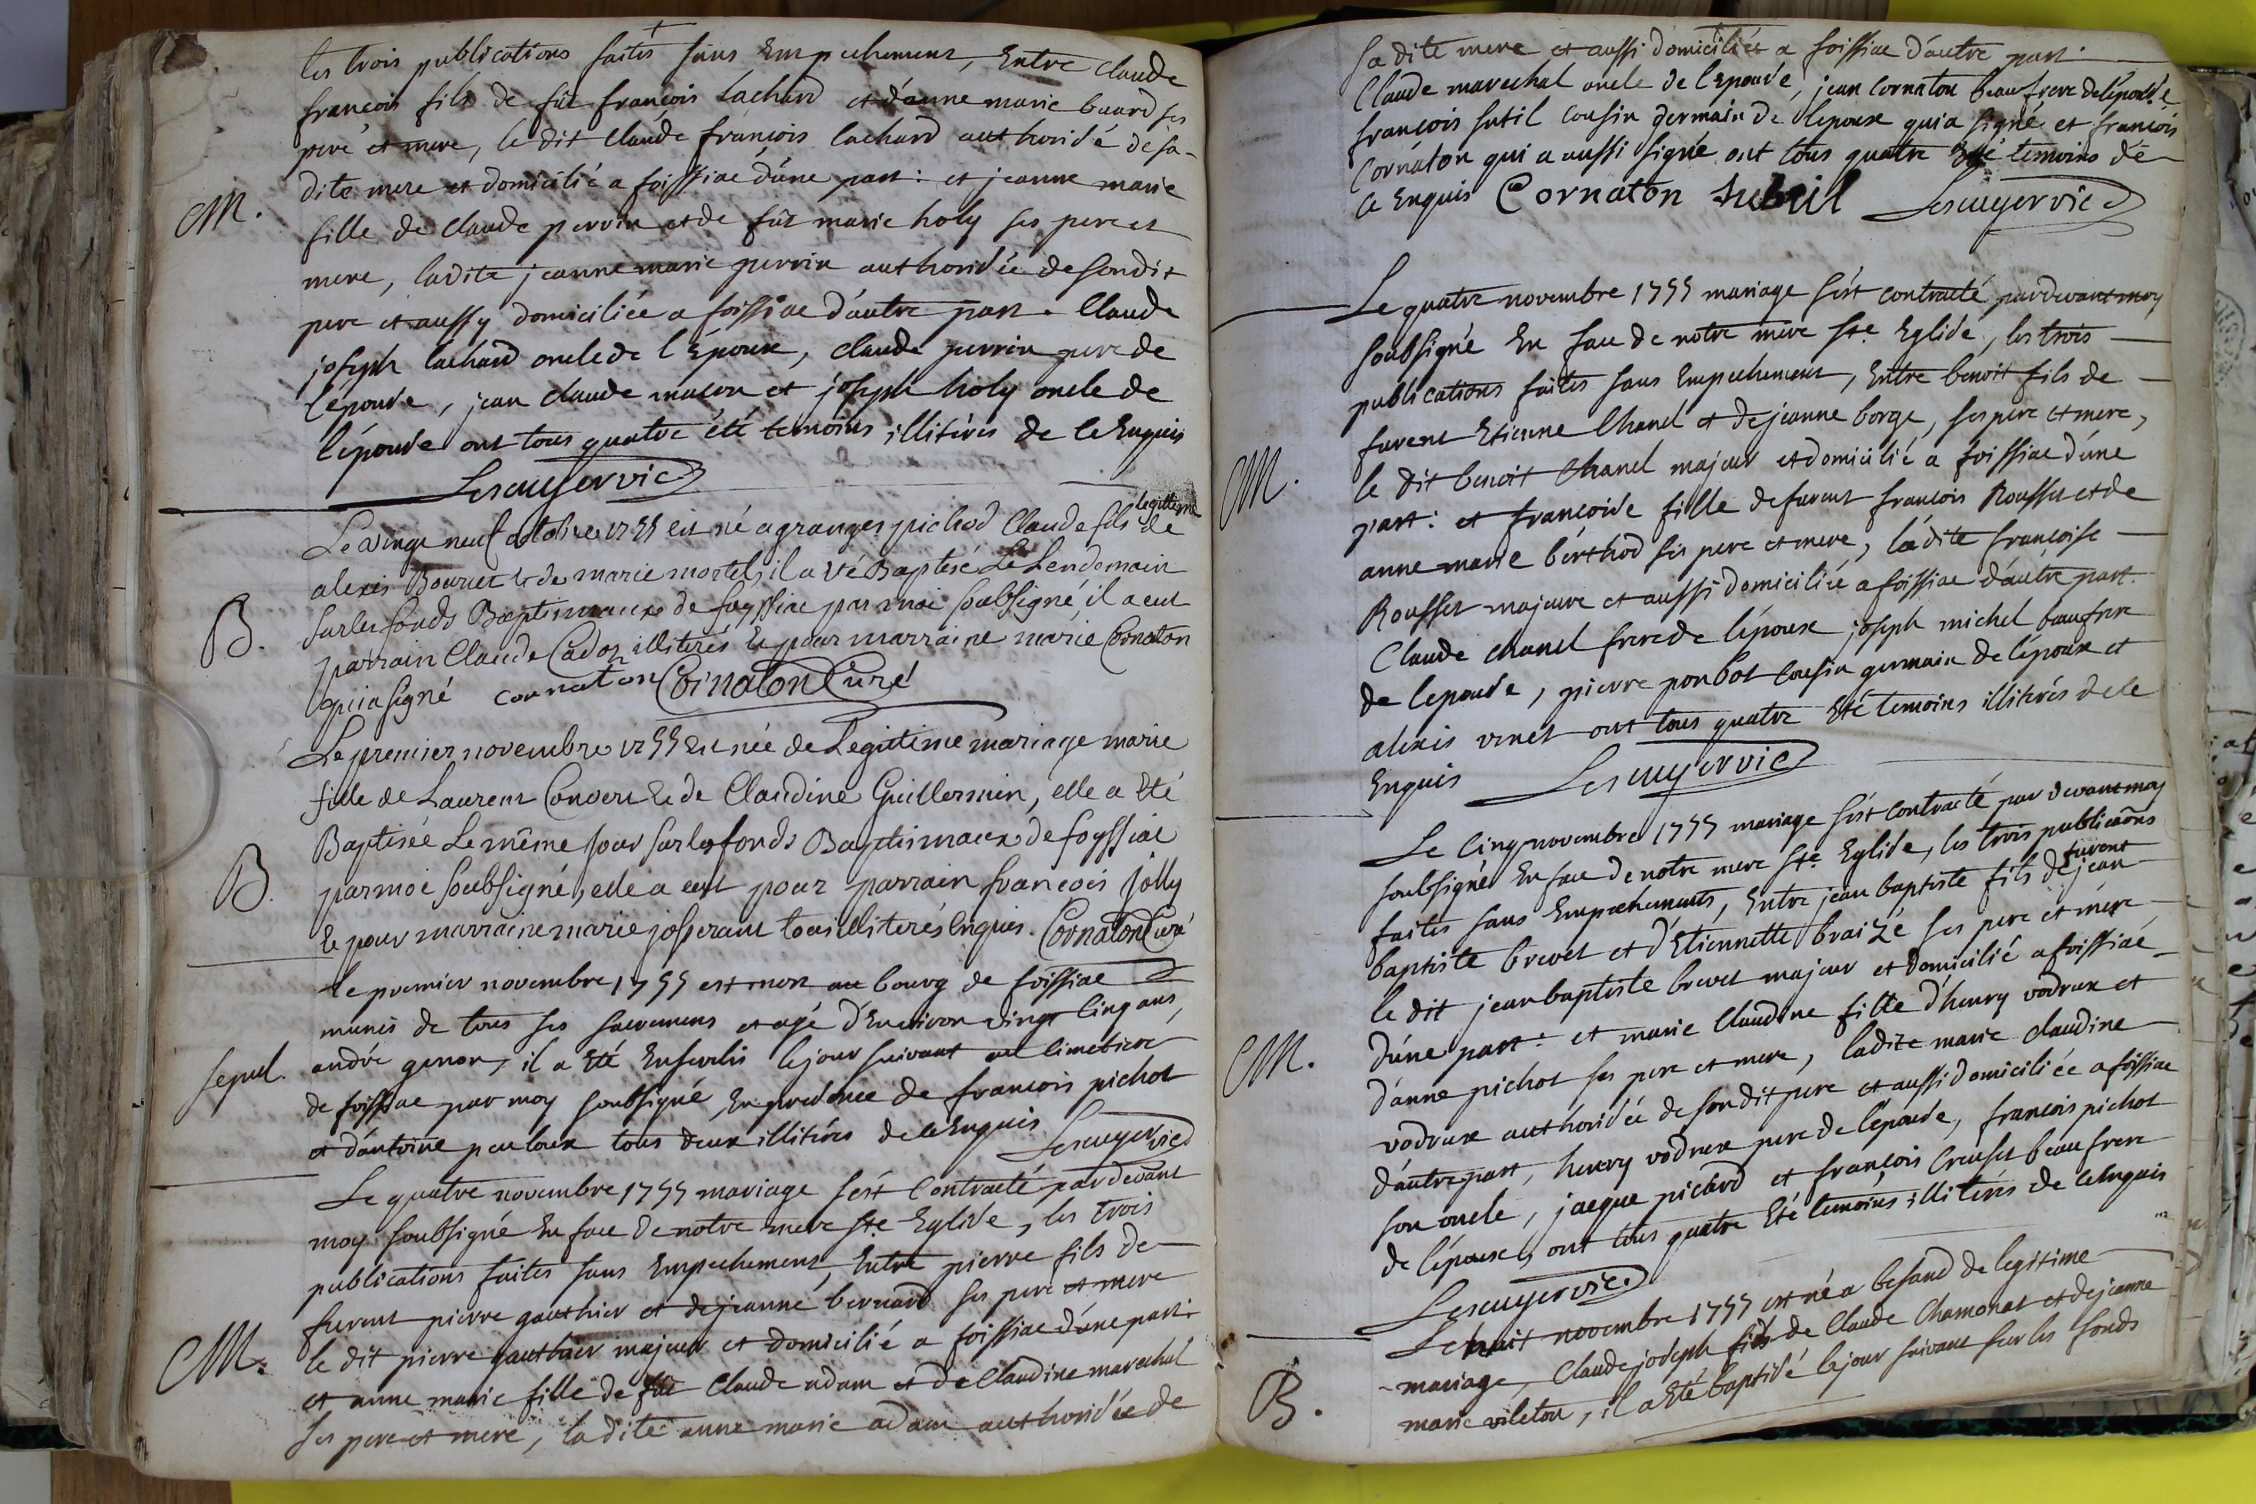 les trois publications faites sans Empechement, Entre claude
françois fils de fût françois lachard et d'anne marie buard ses
pere et mere, le dit claude françois lachard authorisé de sa
dite mere et domicilié a foissiac d'une part : et jeanne marie
M.
fille de claude perrin et de fût marie holy ses pere et
mere, ladite jeanne marie perrin authorisée de son dit
pere et aussy domiciliée a foissiac d'autre part. Claude
joseph lachard oncle de l'Epoux, claude perrin pere de
l'epouse, jean claude macon et joseph holy oncle de
l'épouse ont tous quatre été temoins illitirés de ce Enquis
Lescuyer vic
Le vingt neuf octobre 1755 est né a granges pichod Claude fils legitteme de
alexis Bouvier & de marie mortel, il a été Baptisé Le Lendemain
B.
sur les fonds Baptismaux de foyssiac par moi soubsigné, il a eut
parrain Claude Cadoz illiterés & pour marraine marie Cornaton
qui a signé cornaton Cornaton Curé
Le premier novembre 1755 est née de Legittime mariage marie
fille de Laurent Convert & de Claudine Guillermin, elle a été
Baptisée Le même jour sur les fonds Baptismaux de foyssiac
B.
par moi soubsigné, elle a eut pour parrain françois jolly
& pour marraine marie josserant tous illiterés Enquis. Cornaton Curé
le premier novembre 1755 est mort au bourg de foissiac
munis de tous ses sacremens et agé d'Environ vingt cinq ans,
sepul.
andré genon, il a Eté Enseveli le jour suivant au cimetiere
de foissiac par moy soubsigné En presence de françois pichot
et d'antoine peuloux tous deux illitirés de ce Enquis Lescuyer vic
Le quatre novembre 1755 mariage s'est Contracté pardevant
moy soubsigné En face de notre mere Ste Eglise, les trois
publications faites sans Empechement, Entre pierre fils de
furent pierre gauthier et de jeanne bernard ses pere et mere
M.
le dit pierre gauthier majeur et domicilié a foissiac d'une part :
et anne marie fille de fût Claude adam et de Claudine marechal
ses pere et mere, la dite anne marie adam authorisée de
sa dite mere et aussi domiciliée a foissiac d'autre part
Claude marechal oncle de l'Epouse, jean Cornaton beau frere de l'epouse
françois sutil cousin germain de l'epoux qui a signé et françois
Cornaton qui a aussi signé ont tous quatre Eté temoins de
ce Enquis Cornaton subtil Lescuyer vic
Le quatre novembre 1755 mariage s'est contracté pardevant moy
soubsigné En face de notre mere Ste Eglise, les trois
publications faites sans Empechement, Entre benoit fils de
furent Etienne Chanel et de jeanne borge, ses pere et mere,
M.
le dit benoit Chanel majeur et domicilié a foissiac d'une
part : et françoise fille de furent françois Rousset et de
anne marie berthod ses pere et mere, la dite françoise
Rousset majeure et aussi domiciliée a foissiac d'autre part.
Claude chanel frere de l'époux joseph michel beau frere
de l'epouse, pierre ponbot cousin germain de l'époux et
alexis venet ont tous quatre Eté temoins illitirés de ce
Enquis Lescuyer vic
Le Cinq novembre 1755 mariage s'est Contracté par devant moy
soubsigné En face de notre mere Ste Eglise, les trois publications
faites sans Empechements, Entre jean baptiste fils de furent jean
baptiste brevet et d'Etiennette braizé ses pere et mere
le dit jean baptiste brevet majeur et domicilié a foissiac
d'une part : et marie Claudine fille d'henry vodreux et
M.
d'anne pichot ses pere et mere, ladite marie claudine
vodreux authorisée de son dit pere et aussi domiciliée a foissiac
d'autre part, henry vodreux pere de l'epouse, françois pichot
son oncle, jacque picard et françois Creuset beau frere
de l'époux, ont tous quatre Eté temoins illitirés de ce Enquis
Lescuyer vic
Le huit novembre 1755 est né a besand de legitime
mariage, Claude joseph fils de Claude Chamonat et de jeanne
B.
marie vileton, il a Eté baptisé le jour suivant sur les fonds